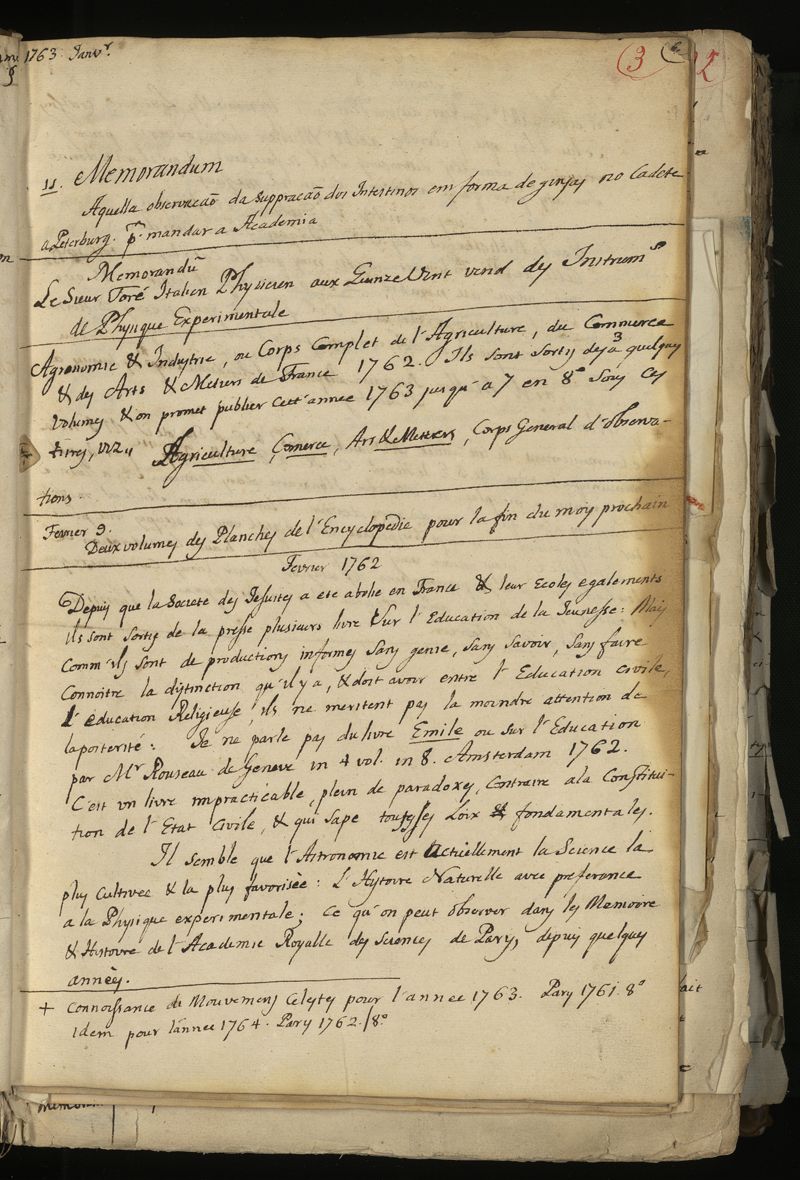 1763. Janv.r
3
11. Memorandum
Aquella observacaõ da suppracaõ dos Intestinos em forma de no Cadete
a Peterburg. p.a mandar a Academia
Memorandũ
Le Sieur Toré Italien Physicien aux Quinze Vint vend des Instrum.s
de Physique Experimentale
Agronomie & Industrie, ou Corps Complet de l'Agriculture, du Commerce
& des Arts & Metiers de France 1762. Ils sont sortis deja 3 quelques
volumes & on promet publier cett'annee 1763 jusqu'a 7 en 8.o sous ces
titres, viz,, Agriculture, Comerce, Arts & Metiers, Corps General d'observa-
tions.
Fevrier 9.
Deux volumes des Planches de l'Encyclopedie pour la fin du mois prochain
Fevrier 1762
Depuis que la Societe des Jesuites a ete abolie en France & leur Ecoles egalements
ils sont sortis de la presse plusieurs livre sur l'Education de la Jeunesse: Mais
Comm'ils sont de productions informes sans genie, sans savoir, sans faire
Connoitre la distinction qu'il y a, & doit avoir entre l'Education civile,
l'education Religieuse, ils ne meritent pas la moindre attention de
la posterité: Je ne parle pas du livre Emile ou sur l'Education
par M.r Rouseau de Geneve in 4 vol. in 8. Amsterdam 1762.
C'est un livre impracticable, plein de paradoxes, Contraire a la Constitui-
tion de l'Etat Civile, & qui sape tous ses Loix fondamentales.
Il semble que l'Astronomie est actuellement la Science la
plus cultivee & la plus favorisèe: l'Hystoire Naturelle avec preference
a la Physique experimentale; ce qu'on peut observer dans les Memoire
& Histoire de l'Academie Royalle des Sciences de Parys depuis quelques
annèes.
+ Connoissance des Mouvemens Celestes pour l'annee 1763. Parys 1761. 8.o
Idem pour l'année 1764. Parys 1762. / 8.o